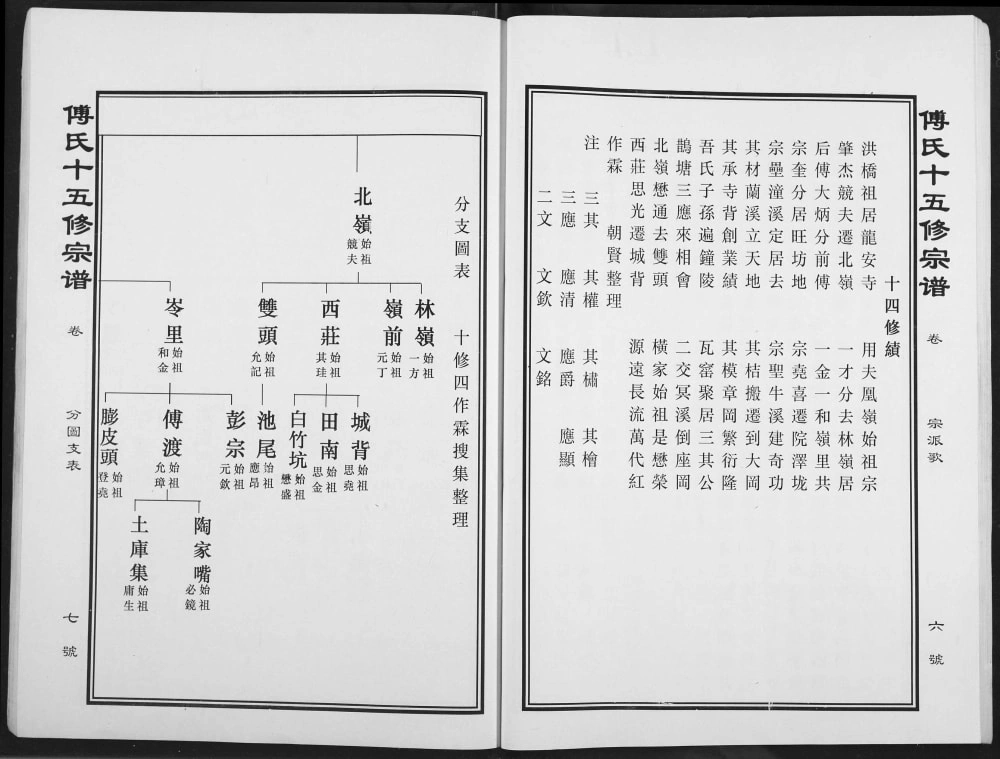 傅氏十五修宗谱
卷
宗派歌
六號
十四修績
洪橋祖居龍安寺 用夫凰嶺始祖宗
肇杰競夫遷北嶺 一才分去林嶺居
后傅大炳分前傅 一金一和嶺里共
宗奎分居旺坊地 宗堯喜遷院澤垅
宗壘潼溪定居去 宗聖牛溪建奇功
其材蘭溪立天地 其桔搬遷到大岡
其承寺背創業績 其模章岡繁衍隆
吾氏子孫遍鐘陵 瓦窑聚居三其公
鵲塘三應來相會 二交冥溪倒座岡
北嶺懋通去雙頭 橫家始祖是懋榮
西莊思光遷城背 源遠長流萬代紅
作霖 朝賢整理
注 三其 其權 其橚 其檜
三應 應清 應爵 應顯
二文 文欽 文銘
分支圖表 十修四作霖搜集整理
北嶺 始祖競夫
林嶺 始祖一方
嶺前 始祖元丁
西莊 始祖其珪
雙頭 始祖允記
岺里 始祖和金
城背 始祖思堯
田南 始祖思金
白竹坑 始祖懋盛
池尾 始祖應昂
彭宗 始祖元欽
傅渡 始祖允璋
膨皮頭 始祖登堯
陶家嘴 始祖必鏡
土庫集 始祖庸生
傅氏十五修宗谱
卷
分圖支表
七號